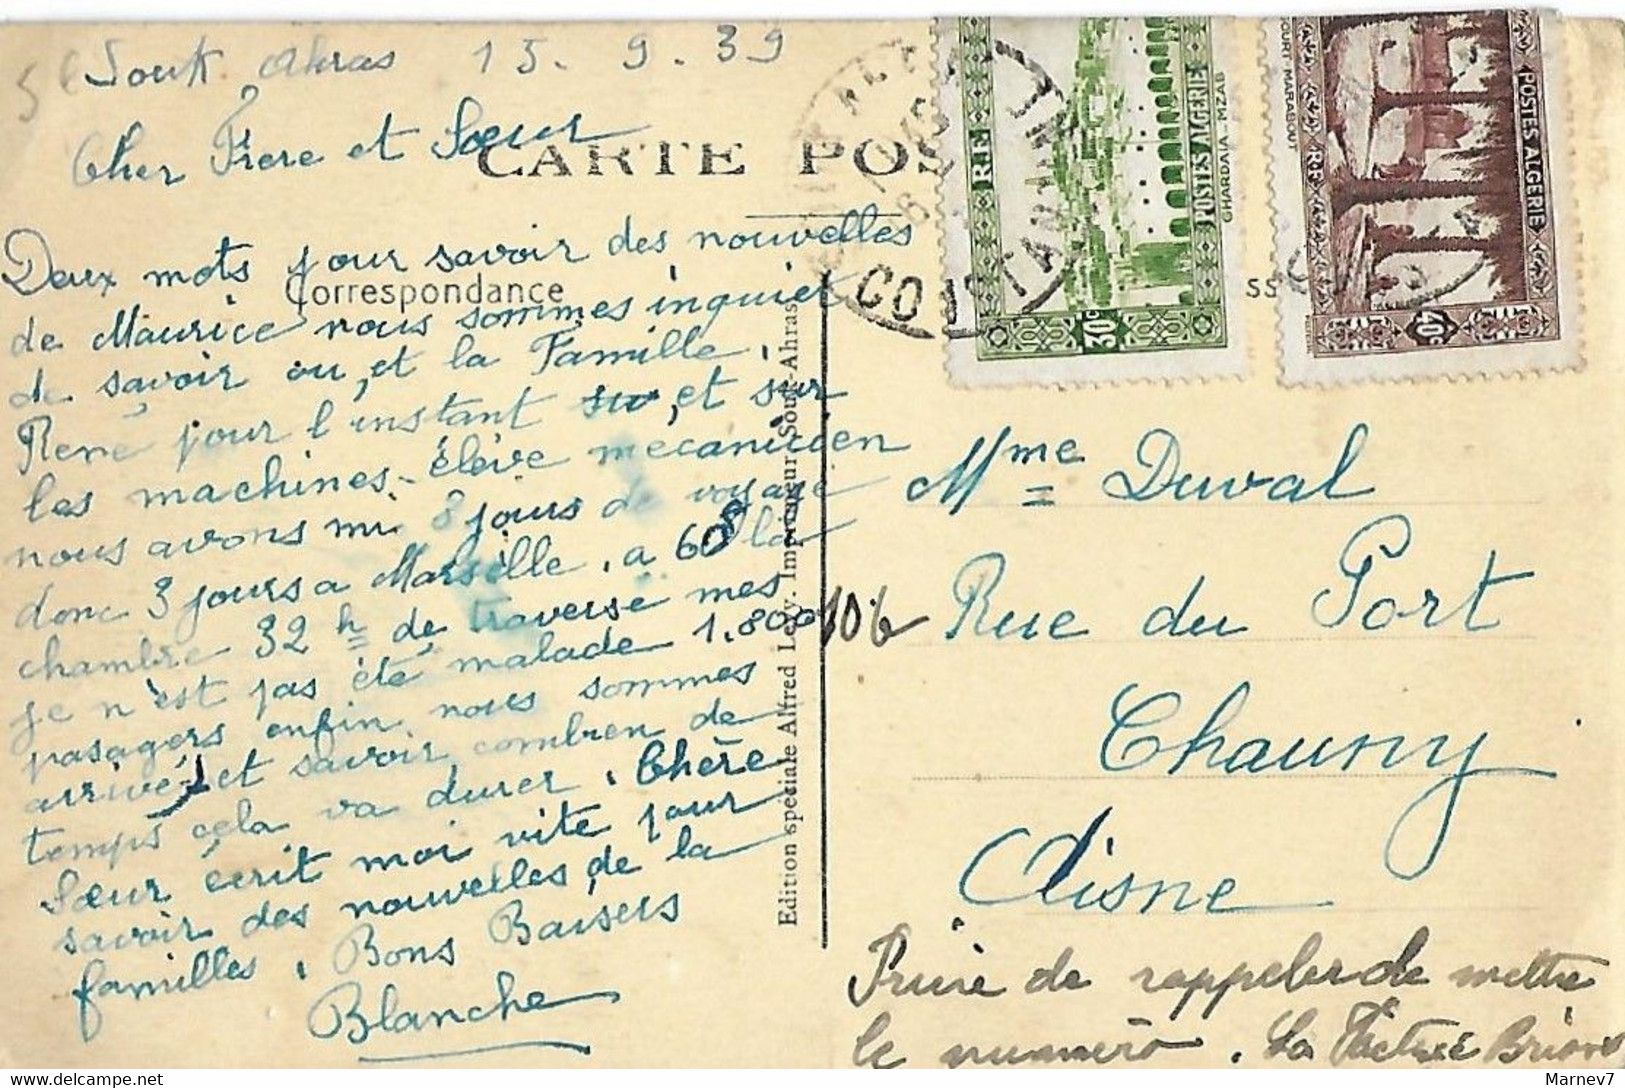 Souk Ahras 15.9.39
Cher Frere et Sœur
CARTE POS
Correspondance
Deux mots pour savoir des nouvelles
de Maurice nous sommes inquiet
de savoir ou, et la Famille,
René pour l'instant su, et sur
les machines - élève mecanicien
nous avons mi 8 jours de voyage
donc 3 jours a Marseille, a 60f la
chambre 32 h de traversé mes
je n'est pas été malade 1.800
pasagers enfin nous sommes
arrivé, et savoir combien de
temps cela va durer. Chère
Sœur écrit moi vite pour
savoir des nouvelles, de la
familles, Bons Baisers
Blanche
Edition spéciale Alfred Levy. Imprimeur. Souk-Ahras
CONSTANTINE
RF
POSTES ALGERIE
GHARDAIA _ MZAB
30c
RF
POSTES ALGERIE
MARABOUT
40c
SS
Mme Duval
106 Rue du Port
Chauny
Aisne
Prière de rappeler de mettre
le numéro. La Factrice
Marnev7